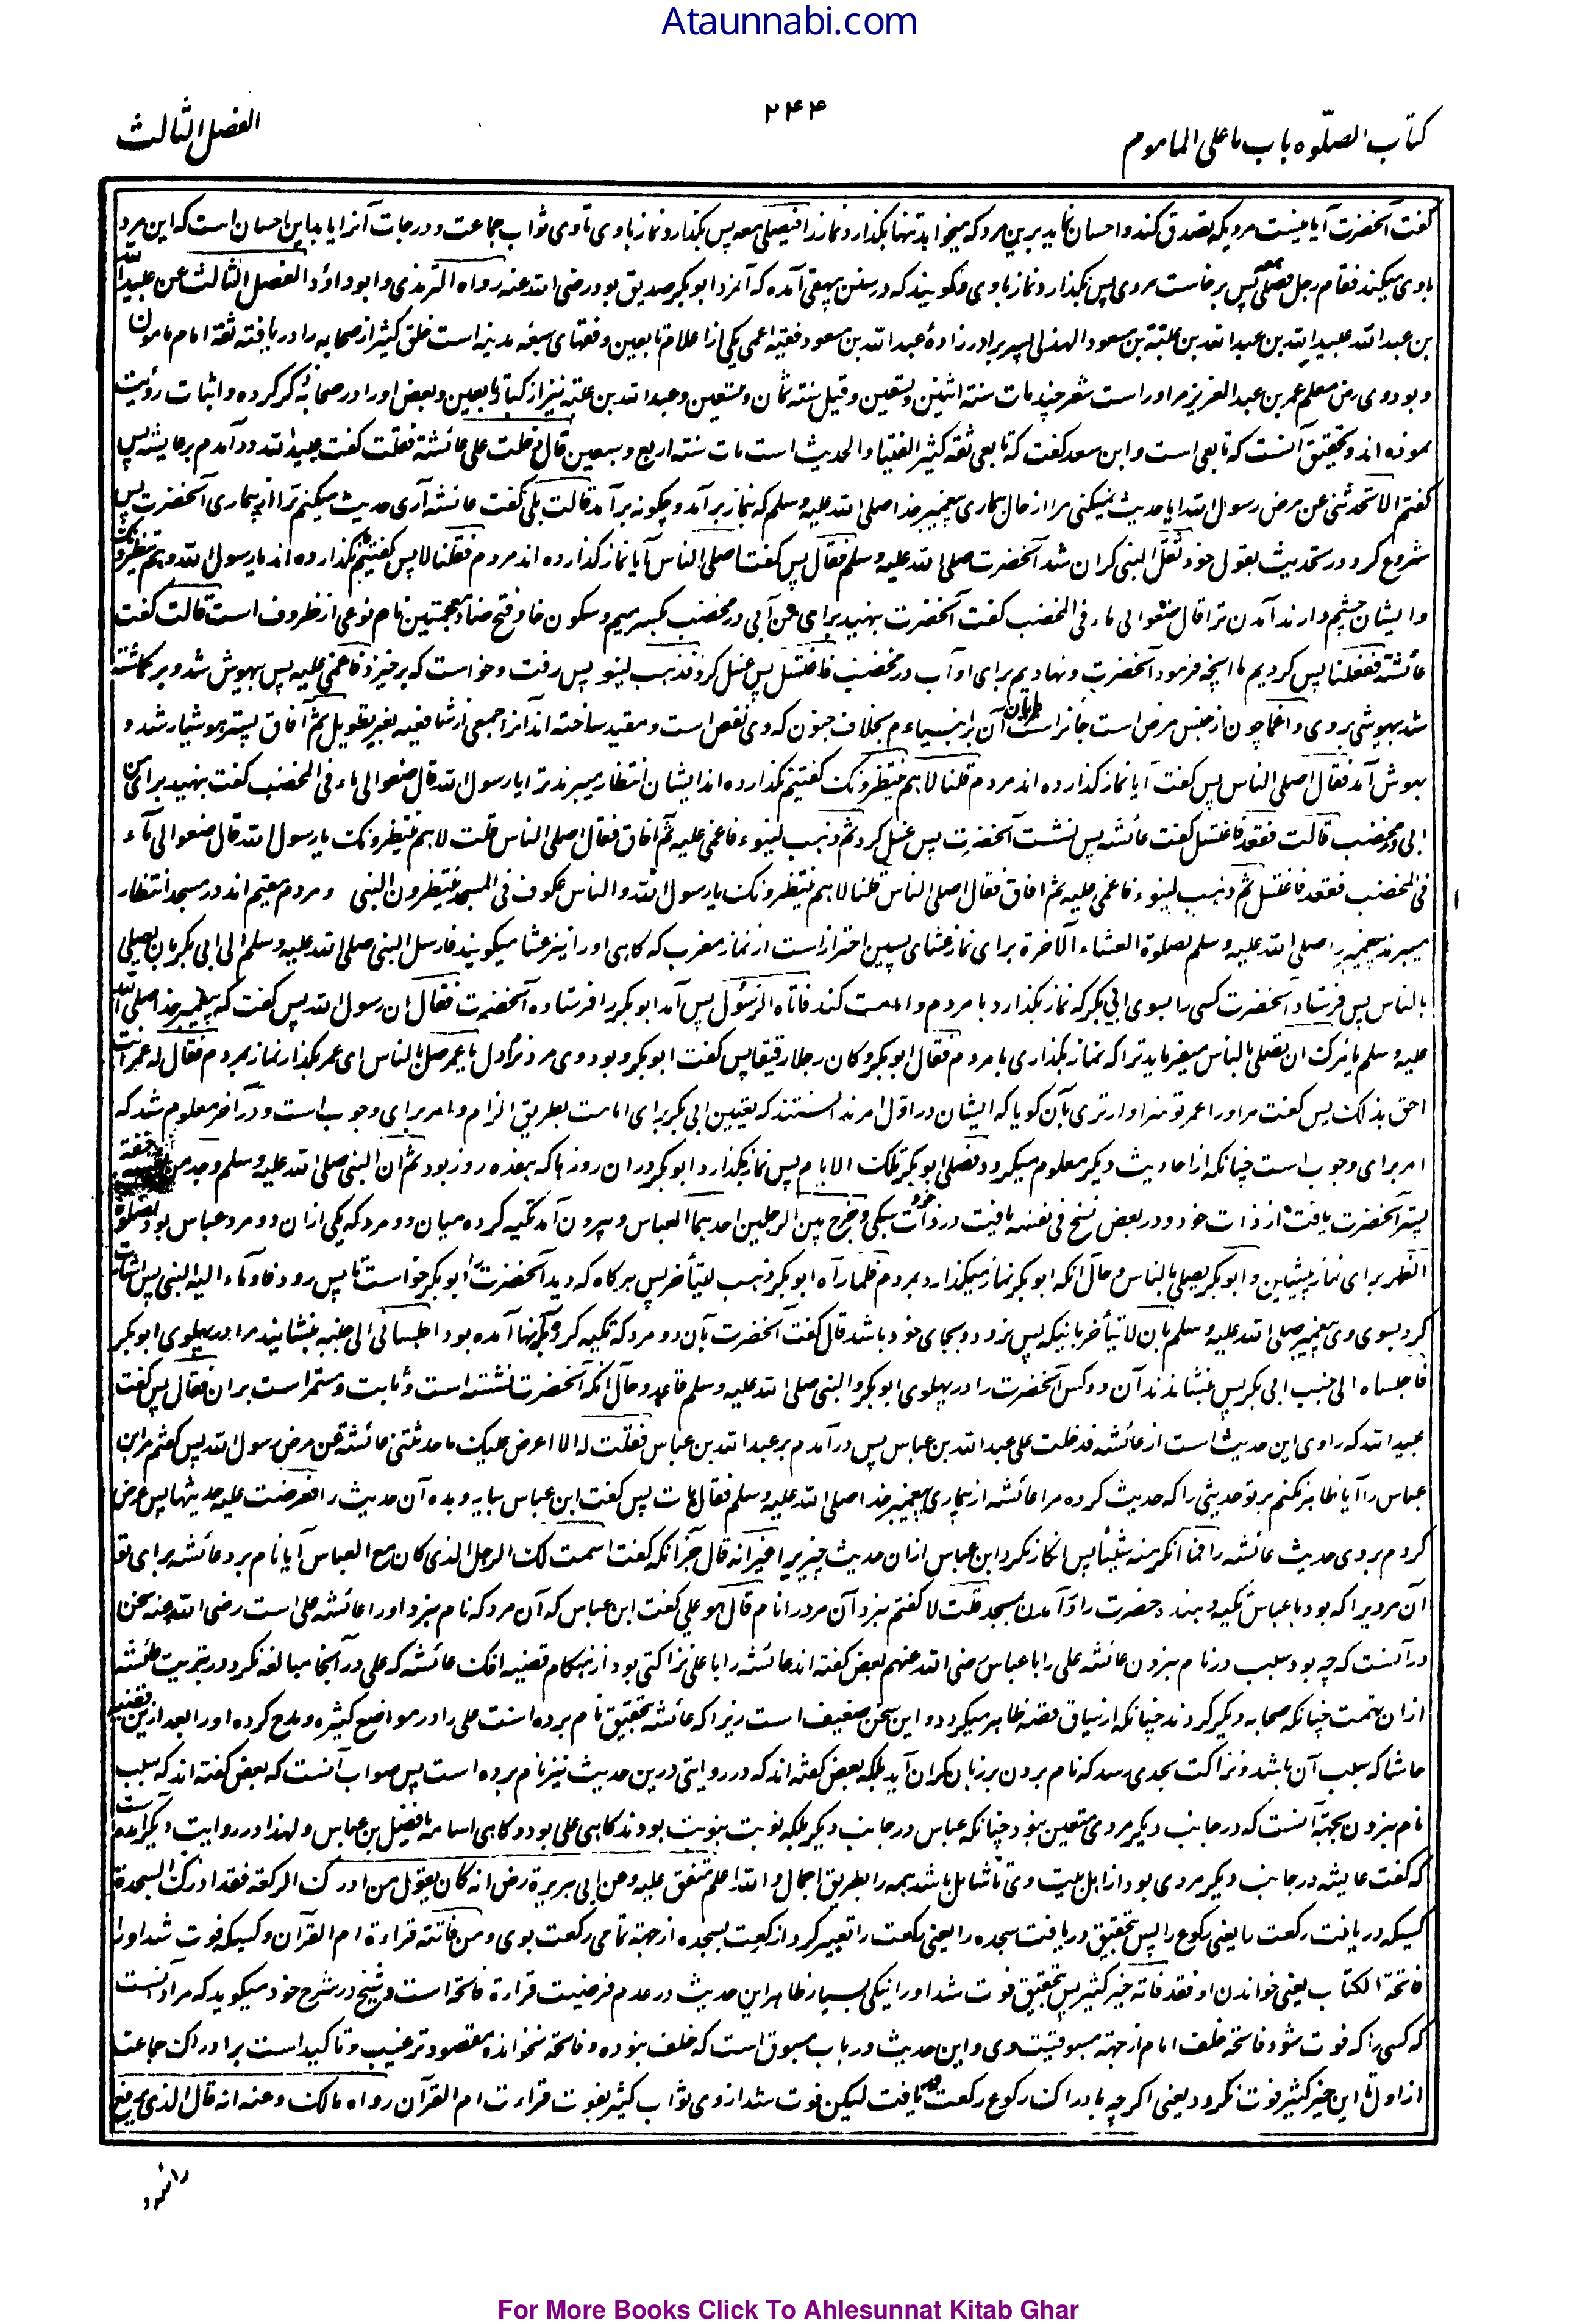 Ataunnabi.com
۲۴۴
کتاب الصلوه باب ما علی الماموم
الفصل الثالث
گفت آنحضرت آیا نیست مردیکه تصدق کند و احسان نماید برین مرد که میخواهد تنها بگذارد نماز را فیصلی معه پس بگذارد نماز باوی تاوی ثواب جماعت و درجات آنرا یابد این احسان است که این مرد
باوی میکند فقام رجل فصلی معه پس برخاست مردی پس بگذارد نماز باوی و گویند که در سنن بیهقی آمده که آنمرد ابوبکر صدیق بود رضی الله عنه رواه الترمذی و ابوداؤد الفصل الثالث عن عبید الله
بن عبد الله عبید الله بن عبد الله بن عتبة بن مسعود الهذلی پسر برادرزادهٔ عبد الله بن مسعود فقیه اعمی یکی از اعلام تابعین و فقهای سبعه مدینه است خلق کثیر از صحابه را دریافته ثقه امام مامون
و بود وی رض معلم عمر بن عبد العزیز مر او راست شعر چند مات سنة اثنین و تسعین و قیل سنة ثمان و تسعین و عبد الله بن عتبه نیز از کبار تابعین و بعض او را در صحابه ذکر کرده و اثبات رؤیت
نموده اند و تحقیق آنست که تابعی است و ابن سعد گفت که تابعی ثقه کثیر الفتیا و الحدیث است مات سنة اربع و سبعین قال دخلت علی عائشة فقلت گفت عبید الله در آمدم بر عایشه پس
گفتم الا تحدثنی عن مرض رسول الله ایا حدیث نمیکنی مرا از حال بیماری پیغمبر خدا صلی الله علیه وسلم که بنماز برآمد و چگونه برآمد قالت بلی گفت عائشه آری حدیث میکنم ترا از بیماری آنحضرت پس
شروع کرد در تحدیث بقول خود ثقل النبی گران شد آنحضرت صلی الله علیه وسلم فقال پس گفت اصلی الناس آیا نماز گذارده اند مردم فقلنا لا پس گفتیم نگذارده اند یا رسول الله و هم ینتظرونک
و ایشان چشم دارند آمدن ترا قال ضعوا لی ماء فی المخضب گفت آنحضرت بنهید برای من آبی در مخضب بکسر میم و سکون خا و فتح ضاد معجمتین نام نوعی از ظروف است قالت گفت
عائشة ففعلنا پس کردیم ما انچه فرمود آنحضرت و نهادیم برای او آب در مخضب فاغتسل پس غسل کرد فذهب لینوء پس رفت و خواست که برخیزد فاغمی علیه پس بیهوش شد و برگماشته
شد بیهوشی بر وی و اغما چون از جنس مرض است جائز است طریان آن بر انبیاء م بخلاف جنون که وی نقص است و مقید ساخته اند آنرا جمعی از شافعیه بغیر طویل ثم آفاق پستر هوشیار شد و
بهوش آمد فقال اصلی الناس پس گفت آیا نماز گذارده اند مردم قلنا لا هم ینتظرونک گفتیم نگذارده اند ایشان انتظار میبرند ترا یا رسول الله قال ضعوا لی ماء فی المخضب گفت بنهید برای من
ابی در مخضب قالت فقعد فاغتسل گفت عائشه پس نشست آنحضرت پس غسل کرد ثم ذهب لینوء فاغمی علیه ثم افاق فقال اصلی الناس قلت لا هم ینتظرونک یا رسول الله قال ضعوا لی ماء
فی المخضب فقعد فاغتسل ثم ذهب لینوء فاغمی علیه ثم افاق فقال اصلی الناس قلنا لا هم ینتظرونک یا رسول الله والناس عکوف فی المسجد ینتظرون النبی و مردم مقیم اند در مسجد انتظار
میبرند پیغمبر را صلی الله علیه وسلم لصلوة العشاء الآخرة برای نماز عشای پسین احتراز است از نماز مغرب که گاهی او را نیز عشا میگویند فارسل النبی صلی الله علیه وسلم الی ابی بکر بان یصلی
بالناس پس فرستاد آنحضرت کسی را بسوی ابی بکر که نماز بگذارد با مردم و امامت کند فاتاه الرسول پس آمد ابوبکر را فرستاده آنحضرت فقال ان رسول الله پس گفت که پیغمبر خدا صلی الله
علیه وسلم یامرک ان تصلی بالناس میفرماید ترا که نماز بگذاری با مردم فقال ابوبکر و کان رجلا رقیقا پس گفت ابوبکر و بود وی مرد نرم دل یا عمر صل بالناس ای عمر بگذار نماز بمردم فقال له عمر انت
احق بذلک پس گفت مر او را عمر تو سزاوارتری بآن گویا که ایشان در اول امر ندانستند که تعیین ابی بکر برای امامت بطریق الزام و امر برای وجوب است و در آخر معلوم شد که
امر برای وجوب است چنانکه از احادیث دیگر معلوم میگردد فصلی ابوبکر تلک الایام پس نماز بگذارد ابوبکر در ان روزها که هفده روز بود ثم ان النبی صلی الله علیه وسلم وجد من نفسه خفة
پستر آنحضرت یافت از ذات خود و در بعض نسخ فی نفسه یافت در ذات خود سبکی و خرج بین الرجلین احدهما العباس و بیرون آمد تکیه کرده میان دو مرد که یکی از ان دو مرد عباس بود لصلوة
الظهر برای نماز پیشین و ابوبکر یصلی بالناس و حال آنکه ابوبکر نماز میگذارد بمردم فلما رآه ابوبکر ذهب لیتأخر پس هرگاه که دید آنحضرت را ابوبکر خواست تا پس رود فاومأ الیه النبی پس اشارت
کرد بسوی وی پیغمبر صلی الله علیه وسلم بان لا یتأخر بانیکه پس نرود و بجای خود باشد قال گفت آنحضرت بآن دو مرد که تکیه کرد بآنها آمده بود اجلسانی الی جنبه بنشانید مرا در پهلوی ابوبکر
فاجلساه الی جنب ابی بکر پس بنشاندند آن دو کس آنحضرت را در پهلوی ابوبکر والنبی صلی الله علیه وسلم قاعد و حال آنکه آنحضرت نشسته است و ثابت و مستمر است بران فقال پس گفت
عبید الله که راوی این حدیث است از عائشه فدخلت علی عبد الله بن عباس پس درآمدم بر عبد الله بن عباس فقلت له الا اعرض علیک ما حدثتنی عائشة عن مرض رسول الله پس گفتم مر ابن
عباس را آیا ظاهر نکنم بر تو حدیثی را که حدیث کرده مرا عائشه از بیماری پیغمبر خدا صلی الله علیه وسلم فقال هات پس گفت ابن عباس بیار و بده آن حدیث را فعرضت علیه حدیثها پس عرض
کردم بر وی حدیث عائشه را فما انکر منه شیئا پس انکار نکرد ابن عباس ازان حدیث چیزیرا غیر انه قال جز آنکه گفت اسمت لک الرجل الذی کان مع العباس آیا نام برد عائشه برای تو
آن مردیرا که بود با عباس تکیه دهنده حضرت را در آمدن بمسجد قلت لا گفتم نبرد آن مرد را نام قال هو علی گفت ابن عباس که آن مرد که نام نبرد او را عائشه علی است رضی الله عنه سخن
در آنست که چه بود سبب در نام نبردن عائشه علی را با عباس رضی الله عنهم بعض گفته اند عائشه را با علی نزاکتی بود از هنگام قضیه افک عائشه که علی در آنجا مبالغه نکرد در تبریت عائشه
ازان تهمت چنانکه صحابه دیگر کردند چنانکه از سیاق قصه ظاهر میگردد و این سخن ضعیف است زیرا که عائشه بتحقیق نام برده است علی را در مواضع کثیره و مدح کرده او را بعد ازین قضیه
حاشا که سبب آن باشد و نزاکت بحدی رسد که نام بردن بر زبان گران آید بلکه بعض گفته اند که در روایتی درین حدیث نیز نام برده است پس صواب آنست که بعض گفته اند که سبب
نام نبردن بجهة آنست که در جانب دیگر مردی متعین نبود چنانکه عباس در جانب دیگر بلکه نوبت بنوبت بودند گاهی علی بود و گاهی اسامه یا فضل بن عباس و لهذا در روایت دیگر آمده است
که گفت عایشه در جانب دیگر مردی بود از اهل بیت وی تا شامل باشد همه را بطریق اجمال و الله اعلم متفق علیه وعن ابی هریرة رض انه کان یقول من ادرک الرکعة فقد ادرک السجدة
کسیکه دریافت رکعت را یعنی رکوع را پس بتحقیق دریافت سجده را یعنی رکعت را تعبیر کرد از رکعت بسجده از جهة تمامی رکعت بوی ومن فاتته قراءة ام القرآن و کسیکه فوت شد او را
فاتحة الکتاب یعنی خواندن او فقد فاته خیر کثیر پس بتحقیق فوت شد او را نیکی بسیار ظاهر این حدیث در عدم فرضیت قراءة فاتحه است و شیخ در شرح خود میگوید که مراد آنست
که کسی را که فوت شود فاتحه خلف امام از جهة مسبوقیت وی و این حدیث در باب مسبوق است که خلف نبوده و فاتحه نخوانده مقصود ترغیب و تاکید است بر ادراک جماعت
از اول تا این خیر کثیر فوت نگردد یعنی اگرچه بادراک رکوع رکعت یافت لیکن فوت شد از وی ثواب کثیر بفوت قراءت ام القرآن رواه مالک وعنه انه قال الذی یرفع
For More Books Click To Ahlesunnat Kitab Ghar